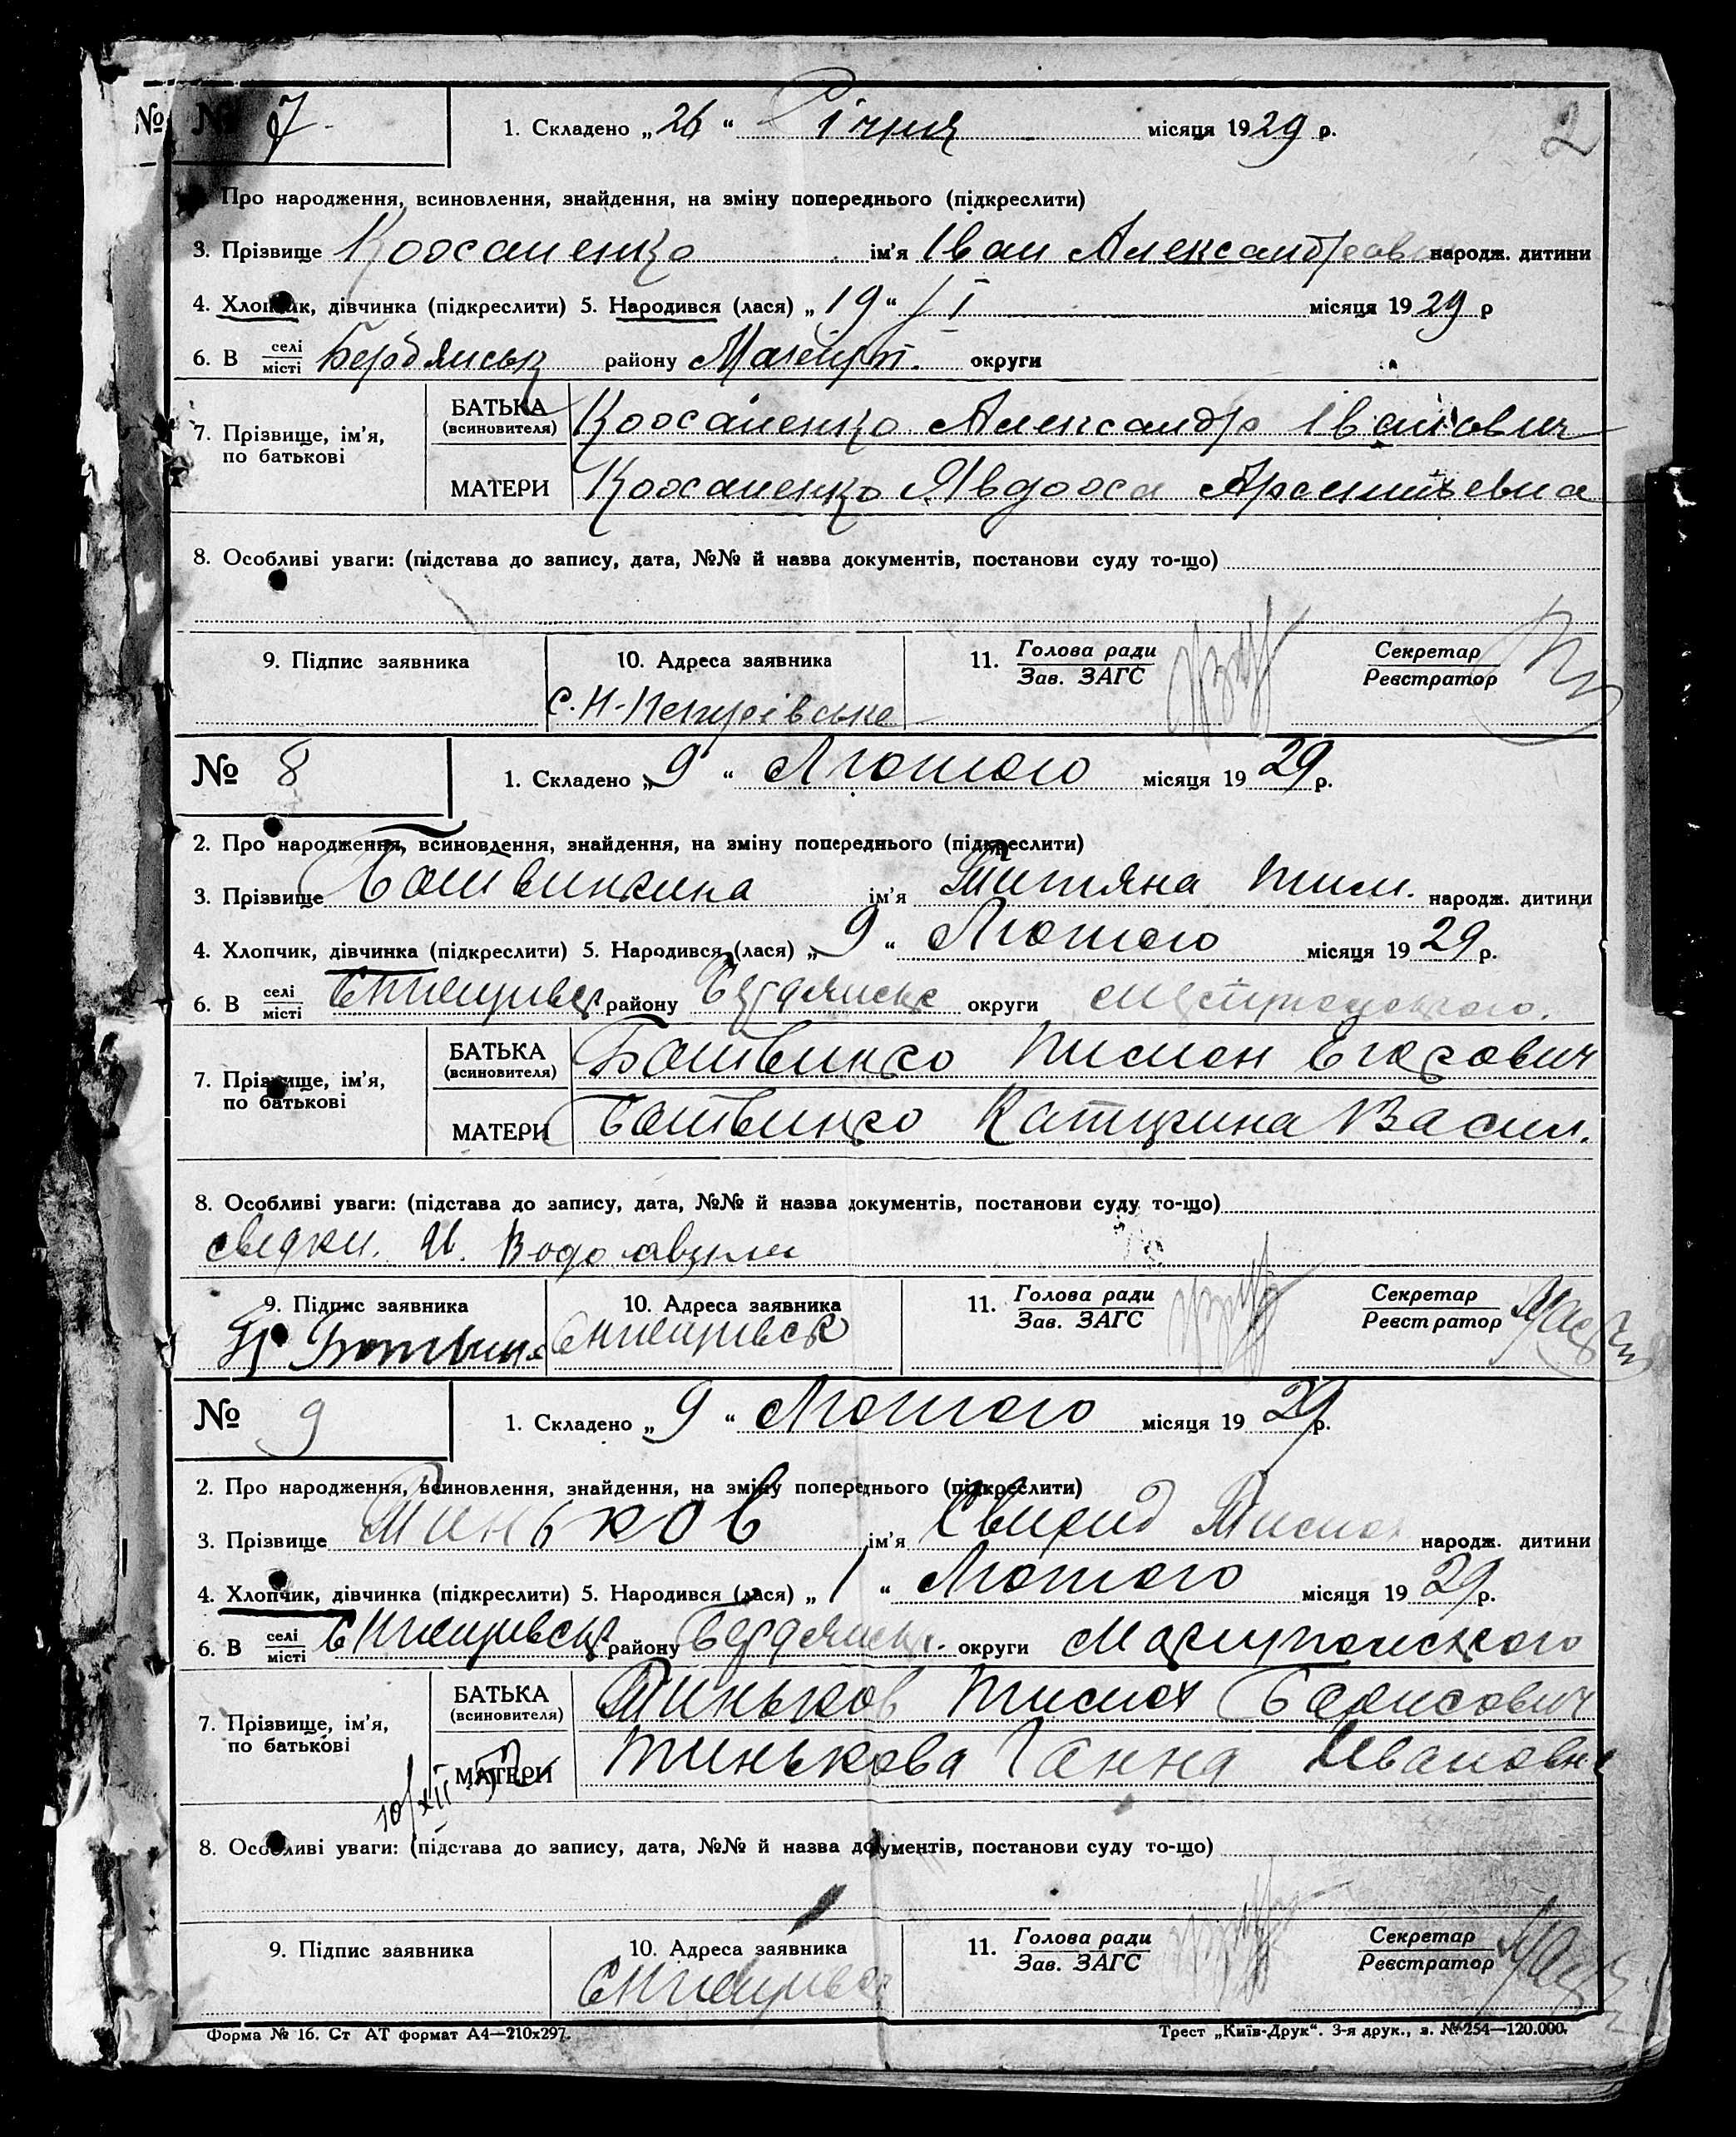 № № 7 1. Складено „26“ Січня місяця 1929 р. 2
Про народження, всиновлення, знайдення, на зміну попереднього (підкреслити)
3. Прізвище ім'я Іван Александров народж. дитини
4. Хлопчик, дівчинка (підкреслити) 5. Народився (лася) „19“ / I місяця 1929 р
6. В селі/місті Бердянськ району округи
7. Прізвище, ім'я, по батькові
БАТЬКА (всиновителя) Александр Іванович
МАТЕРИ
8. Особливі уваги: (підстава до запису, дата, №№ й назва документів, постанови суду то-що)
9. Підпис заявника 10. Адреса заявника 11. Голова ради/Зав. ЗАГС Секретар/Реєстратор
С. Н-Петрівське
№ 8 1. Складено „9“ Лютого місяця 1929 р.
2. Про народження, всиновлення, знайдення, на зміну попереднього (підкреслити)
3. Прізвище Ботвинкина ім'я Титяна Тим. народж. дитини
4. Хлопчик, дівчинка (підкреслити) 5. Народився (лася) „9“ Лютого місяця 1929 р.
6. В селі/місті району округи
7. Прізвище, ім'я, по батькові
БАТЬКА (всиновителя) Ботвинко Тимон Егорович
МАТЕРИ Ботвинко Катирина Васил.
8. Особливі уваги: (підстава до запису, дата, №№ й назва документів, постанови суду то-що)
сведки.
9. Підпис заявника 10. Адреса заявника 11. Голова ради/Зав. ЗАГС Секретар/Реєстратор
№ 9 1. Складено „9“ Лютого місяця 1929 р.
2. Про народження, всиновлення, знайдення, на зміну попереднього (підкреслити)
3. Прізвище Тиньков ім'я Свирид Тимох народж. дитини
4. Хлопчик, дівчинка (підкреслити) 5. Народився (лася) „1“ Лютого місяця 1929 р.
6. В селі/місті району Бердянськ. округи Маріупольского
7. Прізвище, ім'я, по батькові
БАТЬКА (всиновителя) Тиньков Тимох Борисович
МАТЕРИ Тинькова Ганна Ивановна
10/XII
8. Особливі уваги: (підстава до запису, дата, №№ й назва документів, постанови суду то-що)
9. Підпис заявника 10. Адреса заявника 11. Голова ради/Зав. ЗАГС Секретар/Реєстратор
Форма № 16. Ст АТ формат А4—210x297. Трест „Київ-Друк“. 3-я друк., з. № 254—120.000.